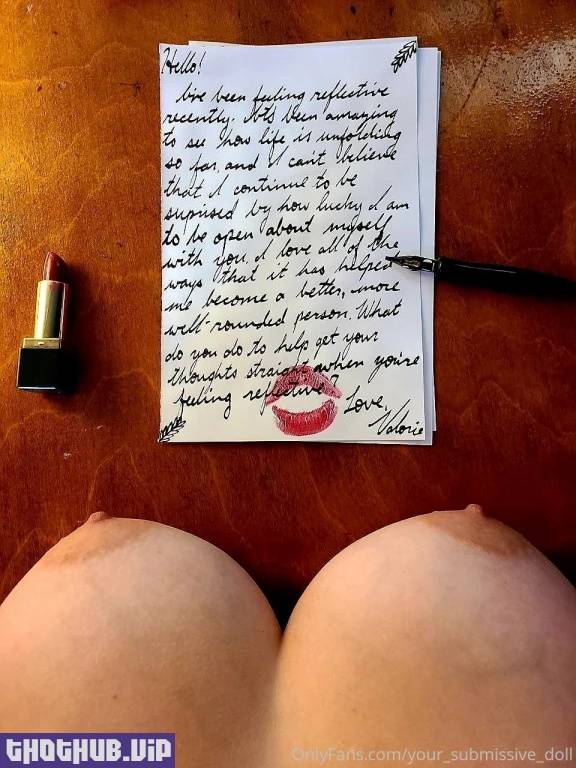 Hello!
I've been feeling reflective
recently. It's been amazing
to see how life is unfolding
so far, and I can't believe
that I continue to be
suprised by how lucky I am
to be open about myself
with you. I love all of the
ways that it has helped
me become a better, more
well-rounded person. What
do you do to help get your
thoughts straight when you're
feeling reflective?
Love,
Valorie
THOTHUB.VIP
OnlyFans.com/your_submissive_doll